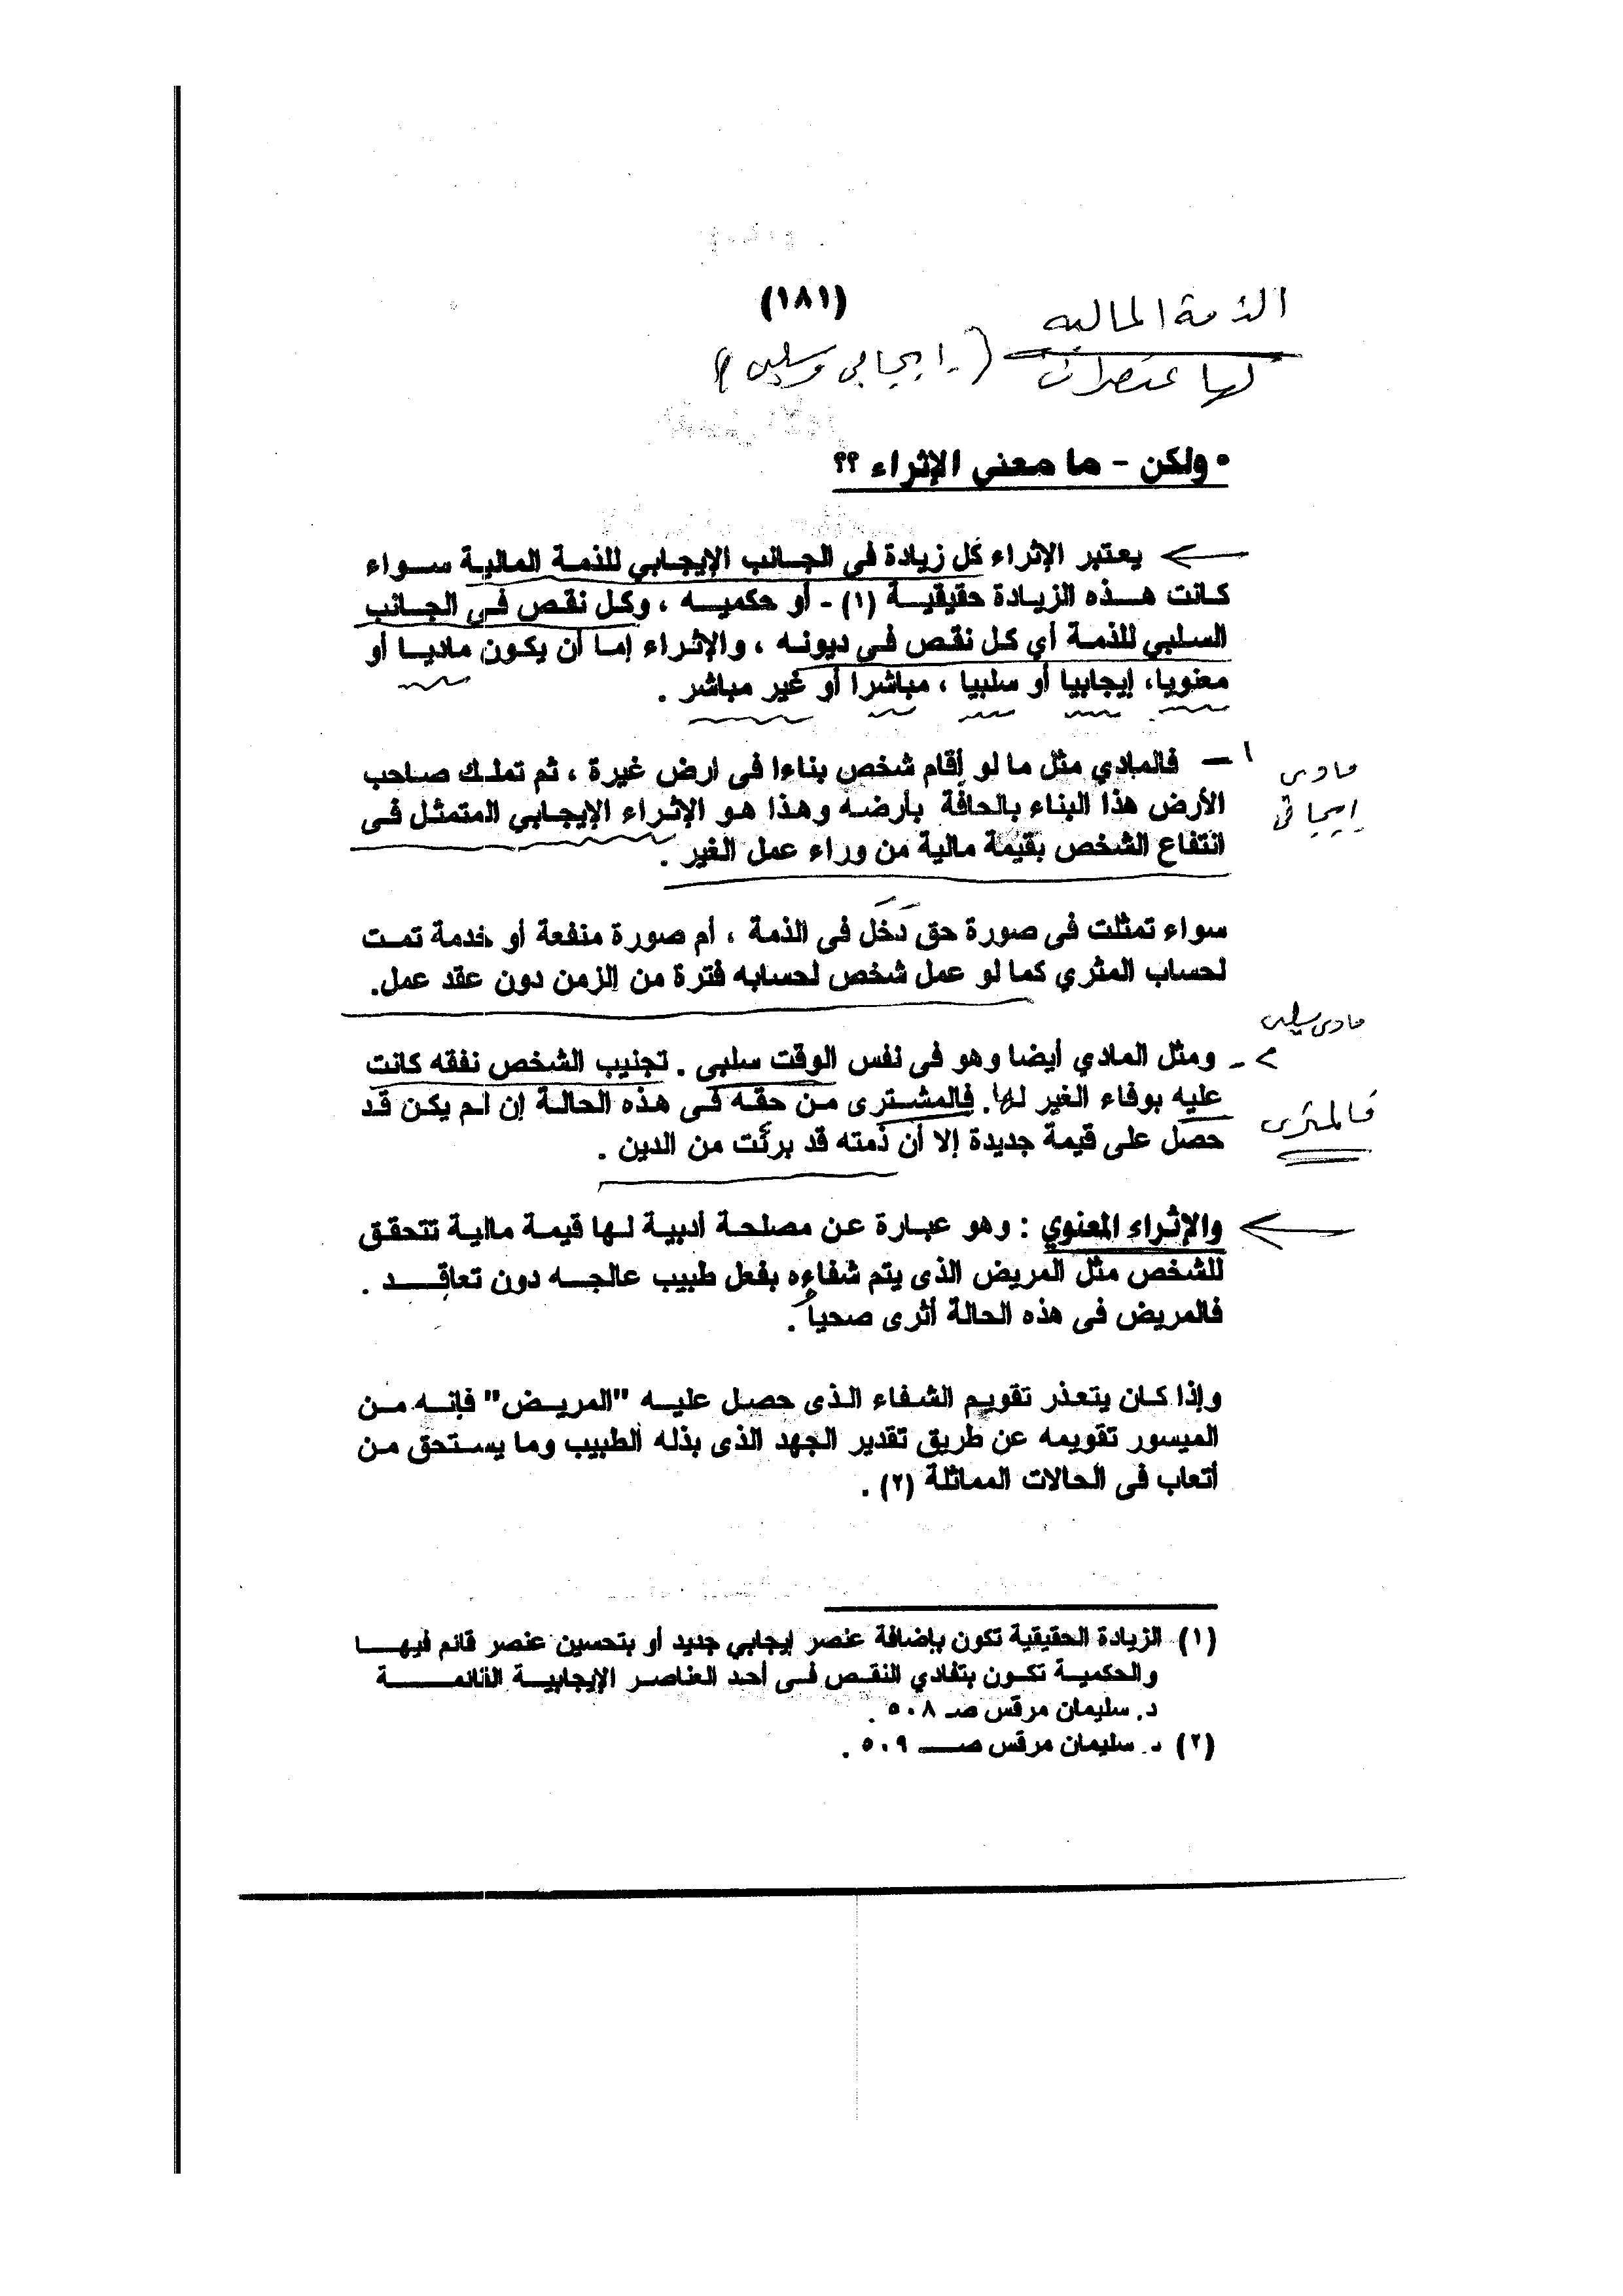 (١٨١)
الذمة المالية
لها عنصران (إيجابي وسلبى)
• ولكن - ما معنى الإثراء ؟؟
يعتبر الإثراء كل زيادة فى الجانب الإيجابي للذمة المالية سواء
كانت هذه الزيادة حقيقية (١) - أو حكميه ، وكل نقص فى الجانب
السلبي للذمة أي كل نقص فى ديونه ، والإثراء إما أن يكون ماديا أو
معنويا، إيجابيا أو سلبيا ، مباشرا أو غير مباشر .
مادى
إيجابى
١ – فالمادي مثل ما لو أقام شخص بناءا فى ارض غيرة ، ثم تملك صاحب
الأرض هذا البناء بالحاقة بأرضه وهذا هو الإثراء الإيجابي المتمثل فى
انتفاع الشخص بقيمة مالية من وراء عمل الغير .
سواء تمثلت فى صورة حق دخل فى الذمة ، أم صورة منفعة أو خدمة تمت
لحساب المثري كما لو عمل شخص لحسابه فترة من الزمن دون عقد عمل.
مادى سلبى
٢ - ومثل المادي أيضا وهو فى نفس الوقت سلبى . تجنيب الشخص نفقه كانت
عليه بوفاء الغير لها. فالمشترى من حقه فى هذه الحالة إن لم يكن قد
فالمثرى
حصل على قيمة جديدة إلا أن ذمته قد برئت من الدين .
والإثراء المعنوي : وهو عبارة عن مصلحة أدبية لها قيمة مالية تتحقق
للشخص مثل المريض الذى يتم شفاءه بفعل طبيب عالجه دون تعاقد .
فالمريض فى هذه الحالة أثرى صحياً .
وإذا كان يتعذر تقويم الشفاء الذى حصل عليه "المريض" فإنه من
الميسور تقويمه عن طريق تقدير الجهد الذى بذله الطبيب وما يستحق من
أتعاب فى الحالات المماثلة (٢) .
(١) الزيادة الحقيقية تكون بإضافة عنصر إيجابي جديد أو بتحسين عنصر قائم فيها
والحكمية تكون بتفادي النقص فى أحد العناصر الإيجابية القائمة
د. سليمان مرقس صـ ٥٠٨ .
(٢) د. سليمان مرقس صـ ٥٠٩ .